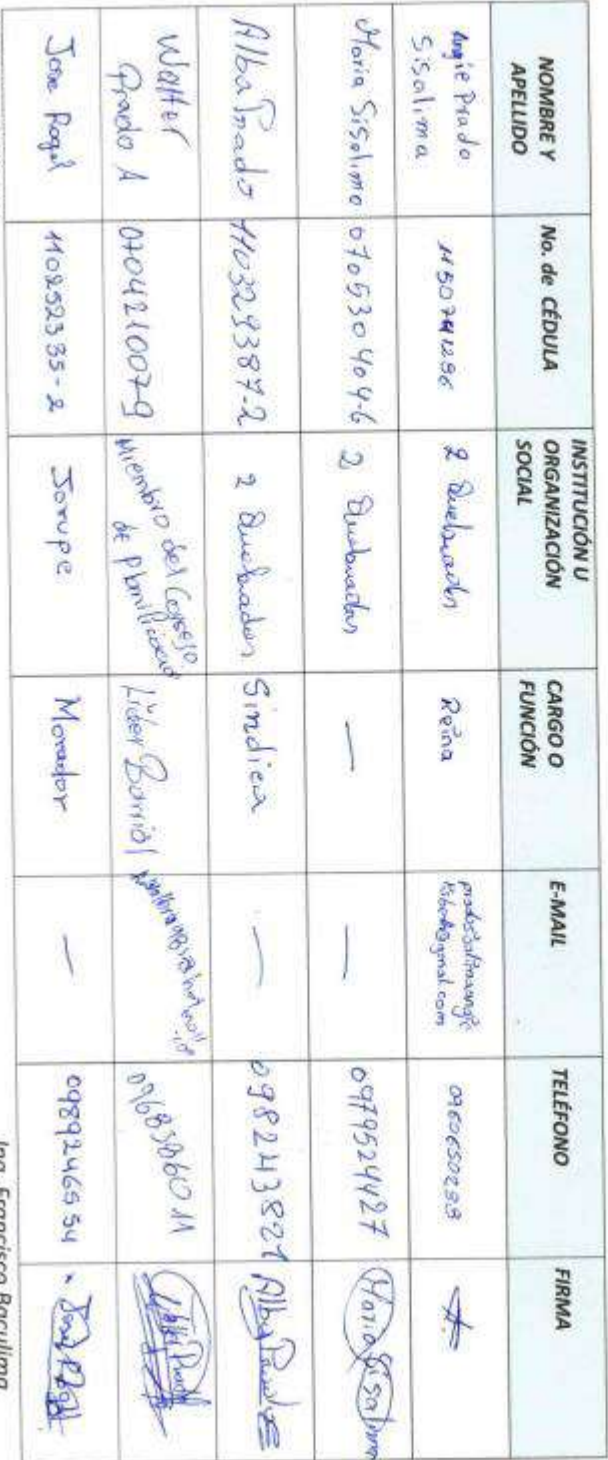 NOMBRE Y
APELLIDO
No. de CÉDULA
INSTITUCIÓN U
ORGANIZACIÓN
SOCIAL
CARGO O
FUNCIÓN
E-MAIL
TELÉFONO
FIRMA
Angie Prado
Sisalima
1150741296
2 Quebradas
Reina
A.
Maria Sisalima
070530404-6
2 Quebradas
—
—
0979524427
Maria Sisalima
Alba Prado
110329387-2
2 Quebradas
Sindica
—
098243821
Alba Prado
Walter
Prado A
070421007-9
Miembro del Consejo
de Planificacion
Líder Barrial
Jose Rogel
110252335-2
Jorupe
Morador
—
0989246554
Ing. Francisco Baculima